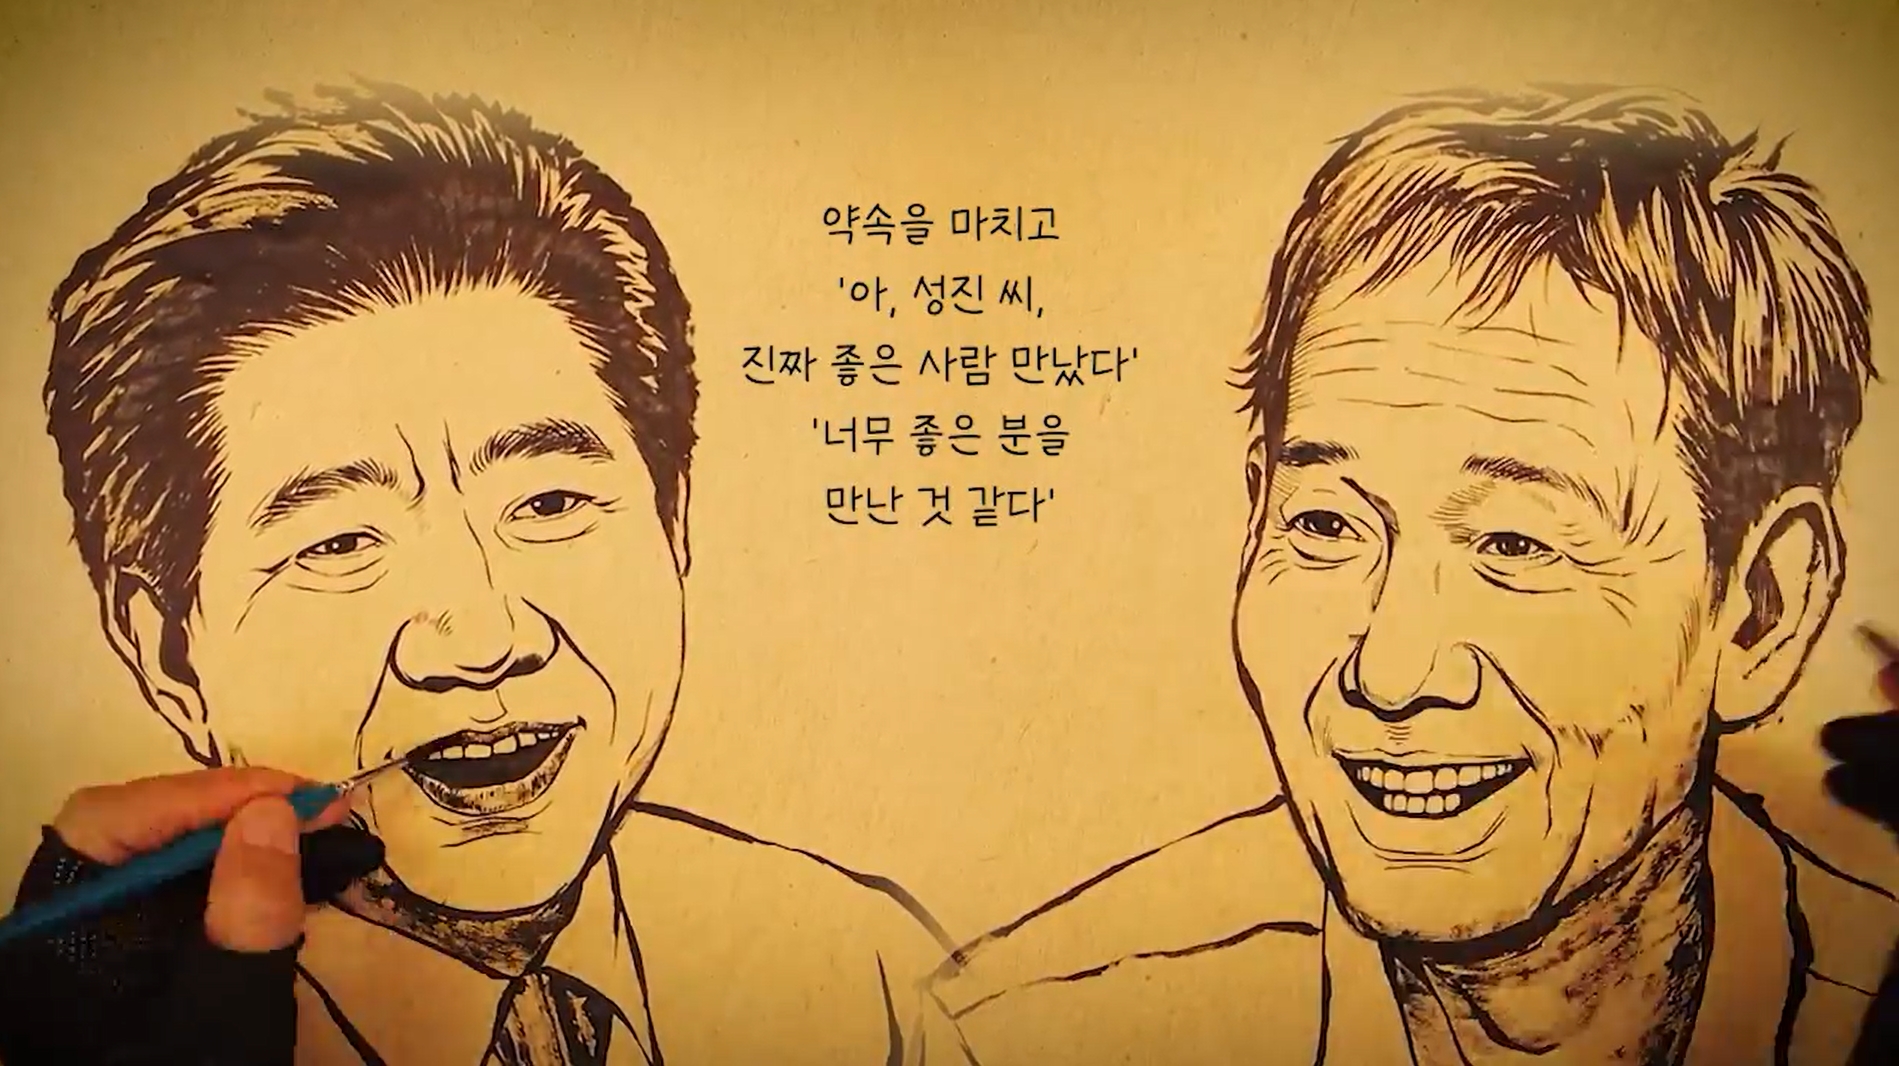 약속을 마치고
'아, 성진 씨,
진짜 좋은 사람 만났다'
'너무 좋은 분을
만난 것 같다'